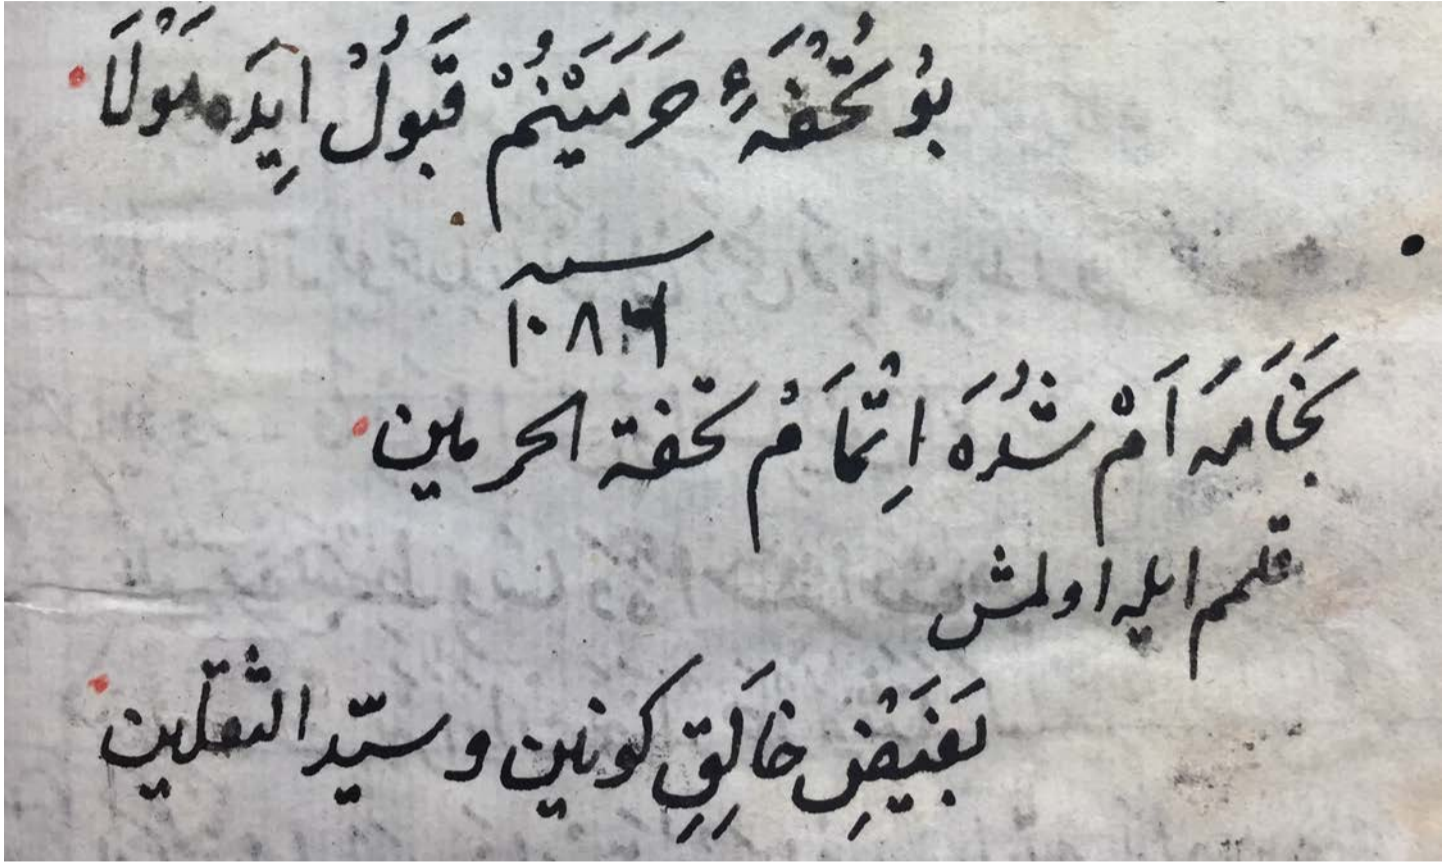 بُو تُحْفَۀِ حَرَمَيْنُمْ قَبُولْ اِيدَه مَوْلَا
سنه
١٠٨٦
بَخَامَه اَمْ شُدَه اِتْمَامُ تحفة الحرمين
قلمم ايله اولمش
بَفَيْضِ خَالِقِ كونين و سيّد الثقلين